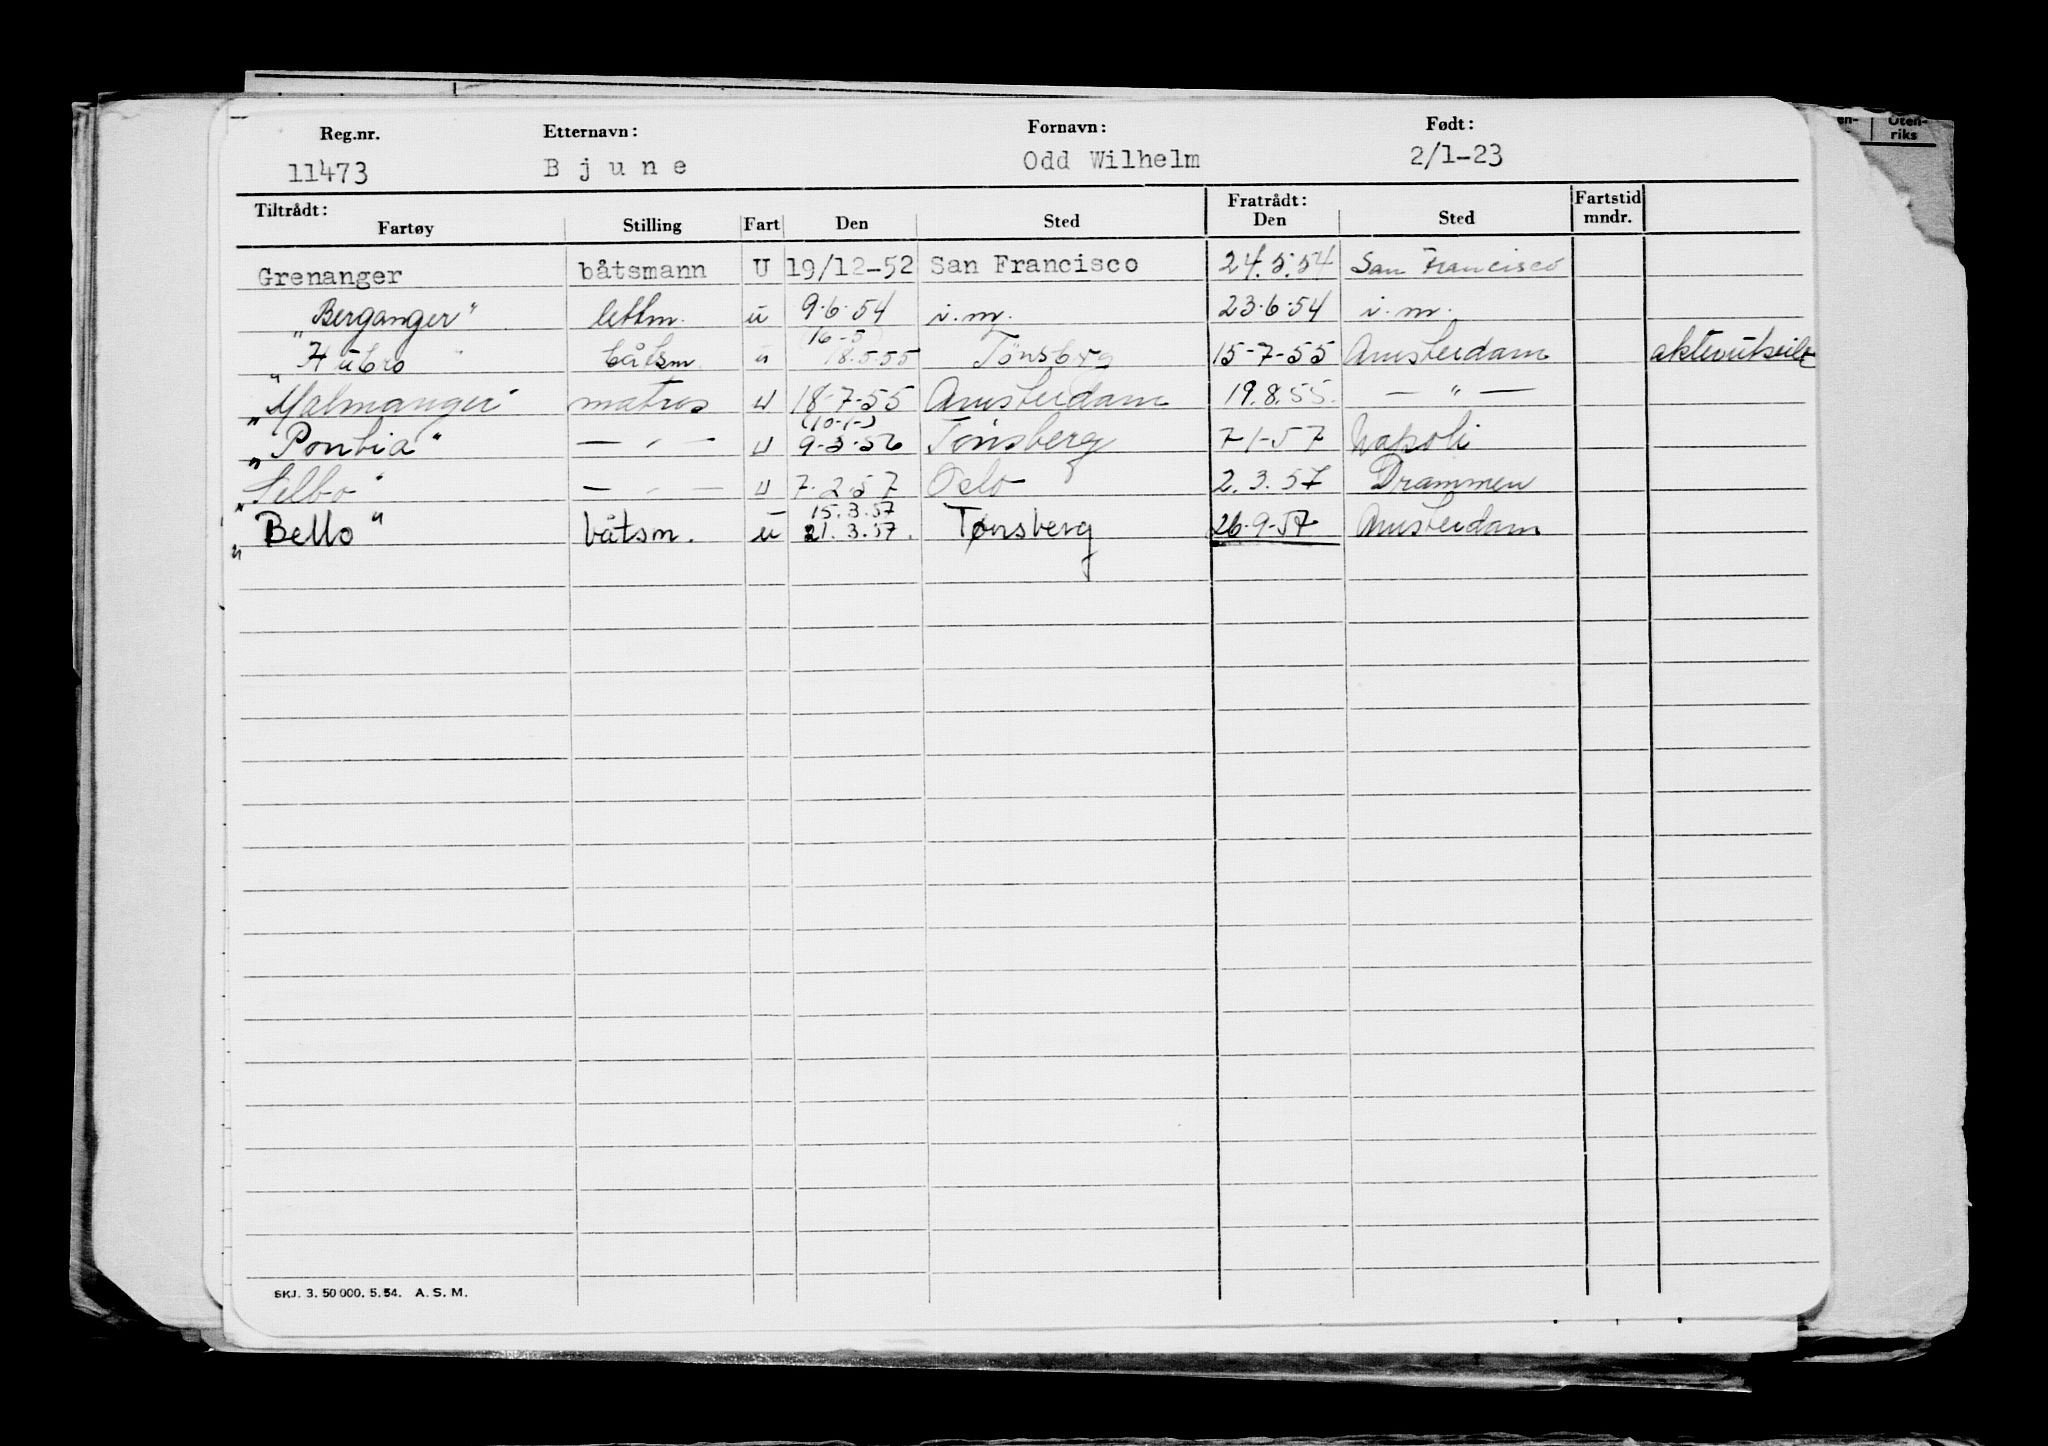 en- Uten-
riks
Reg.nr. Etternavn: Fornavn: Født:
11473 Bjune Odd Wilhelm 2/1-23
Tiltrådt: Fratrådt: Fartstid
Fartøy Stilling Fart Den Sted Den Sted mndr.
Grenanger båtsmann U 19/12-52 San Francisco 24.5.54 San Francisco
"Berganger" lettm. u 9.6.54 i.m. 23.6.54 i.m.
16-5
"Hubro" båtsm u 18.5.55 Tønsberg 15-7-55 Amsterdam
"Malmanger" matros u 18-7-55 Amsterdam 19.8.55. — " —
(10-1-)
"Pontia" — " — u 9-3-56 Tønsberg 7-1-57 Napoli
"Selbo" — " — u 7.2.57 Oslo 2.3.57 Drammen
15.3.57
"Bello" båtsm. u 21.3.57. Tønsberg 26-9-57 Amsterdam
SKJ. 3. 50 000. 5. 54. A. S. M.